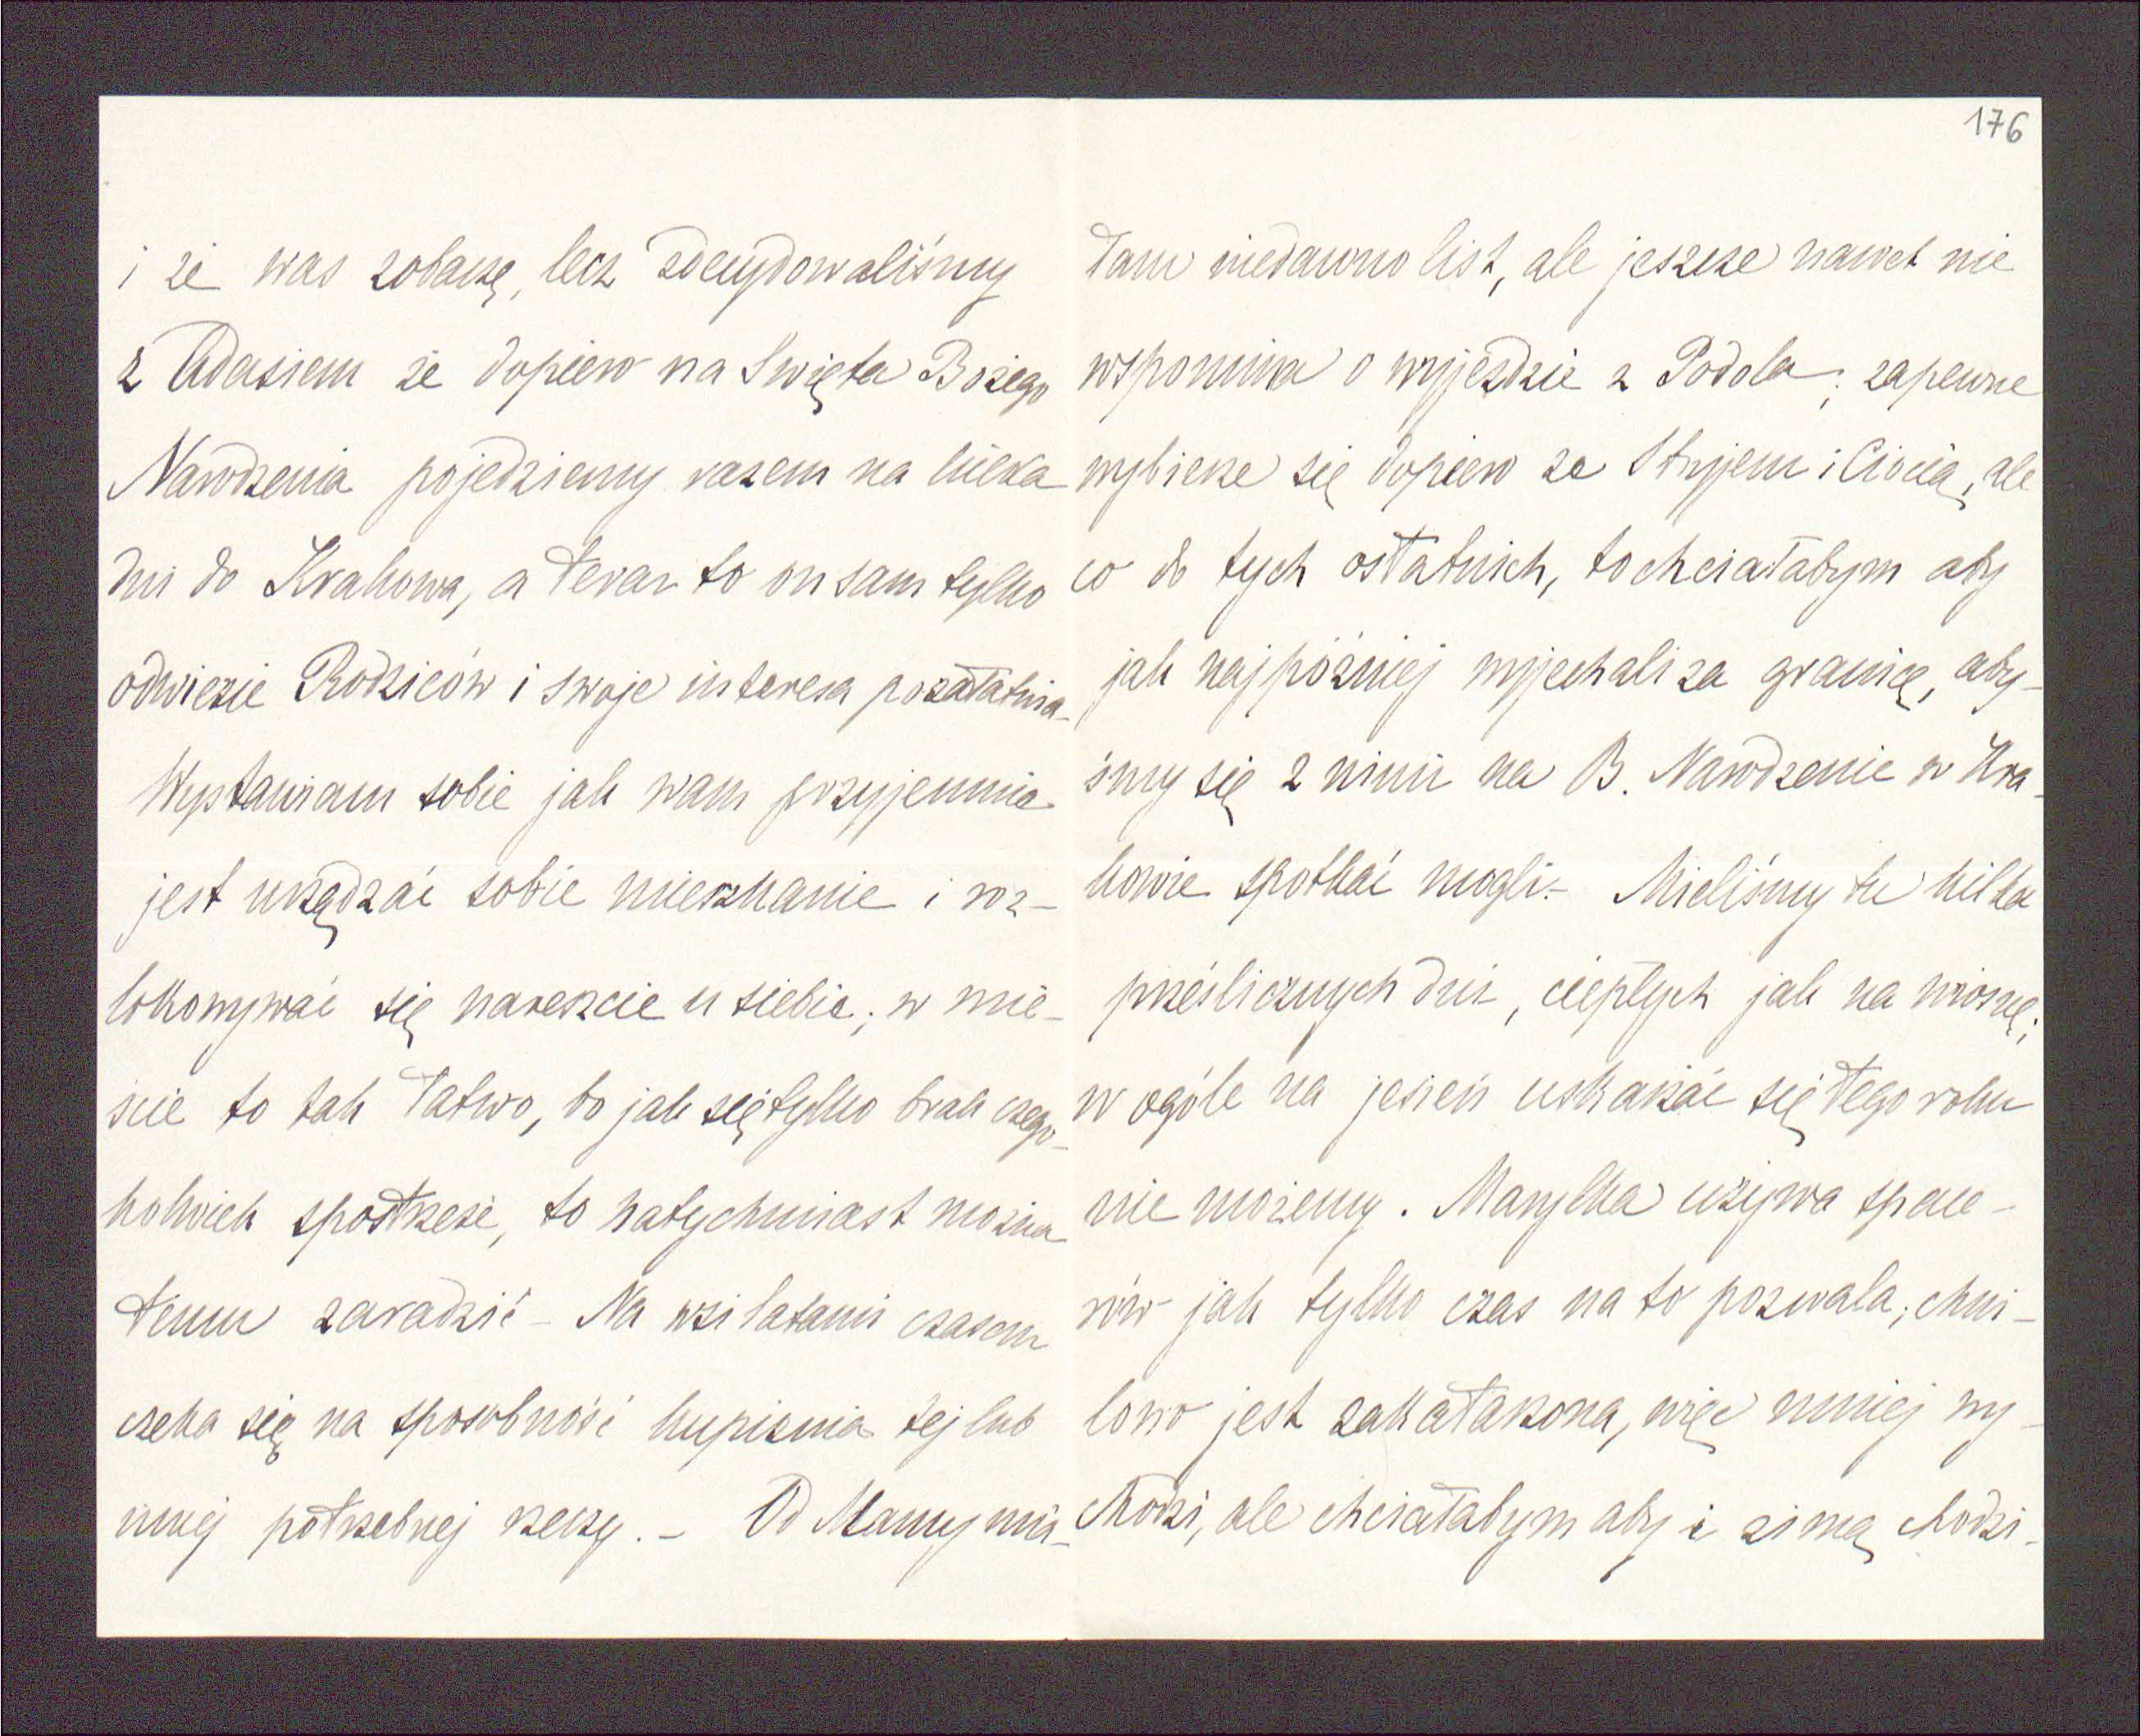 i że was zobaczę, lecz zdecydowaliśmy
z Adasiem że dopiero na Święta Bożego
Narodzenia pojedziemy razem na kilka
dni do Krakowa, a teraz to on sam tylko
odwiezie Rodziców i swoje interesa pozałatwia.
Wystawiam sobie jak wam przyjemnie
jest urządzać sobie mieszkanie i roz-
lokowywać się nareszcie u siebie; w mie-
ście to tak łatwo, bo jak się tylko brak czego-
kolwiek spostrzeże, to natychmiast można
temu zaradzić – Na wsi latami czasem
czeka się na sposobność kupienia tej lub
innej potrzebnej rzeczy. – Od Mamy mia-
176
łam niedawno list, ale jeszcze nawet nie
wspomina o wyjeździe z Podola; zapewne
wybierze się dopiero ze Stryjem i Ciocią, ale
co do tych ostatnich, to chciałabym aby
jak najpóźniej wyjechali za granicę, aby-
śmy się z nimi na B. Narodzenie w Kra-
kowie spotkać mogli. – Mieliśmy tu kilka
prześlicznych dni, ciepłych jak na wiosnę;
w ogóle na jesień uskarżać się tego roku
nie możemy. Marylka używa space-
rów jak tylko czas na to pozwala; chwi-
lowo jest zakatarzona, więc mniej wy-
chodzi, ale chciałabym aby i zimą chodzi-